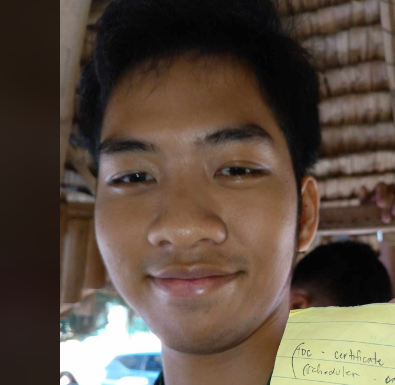 (TDC - certificate
scheduler
on